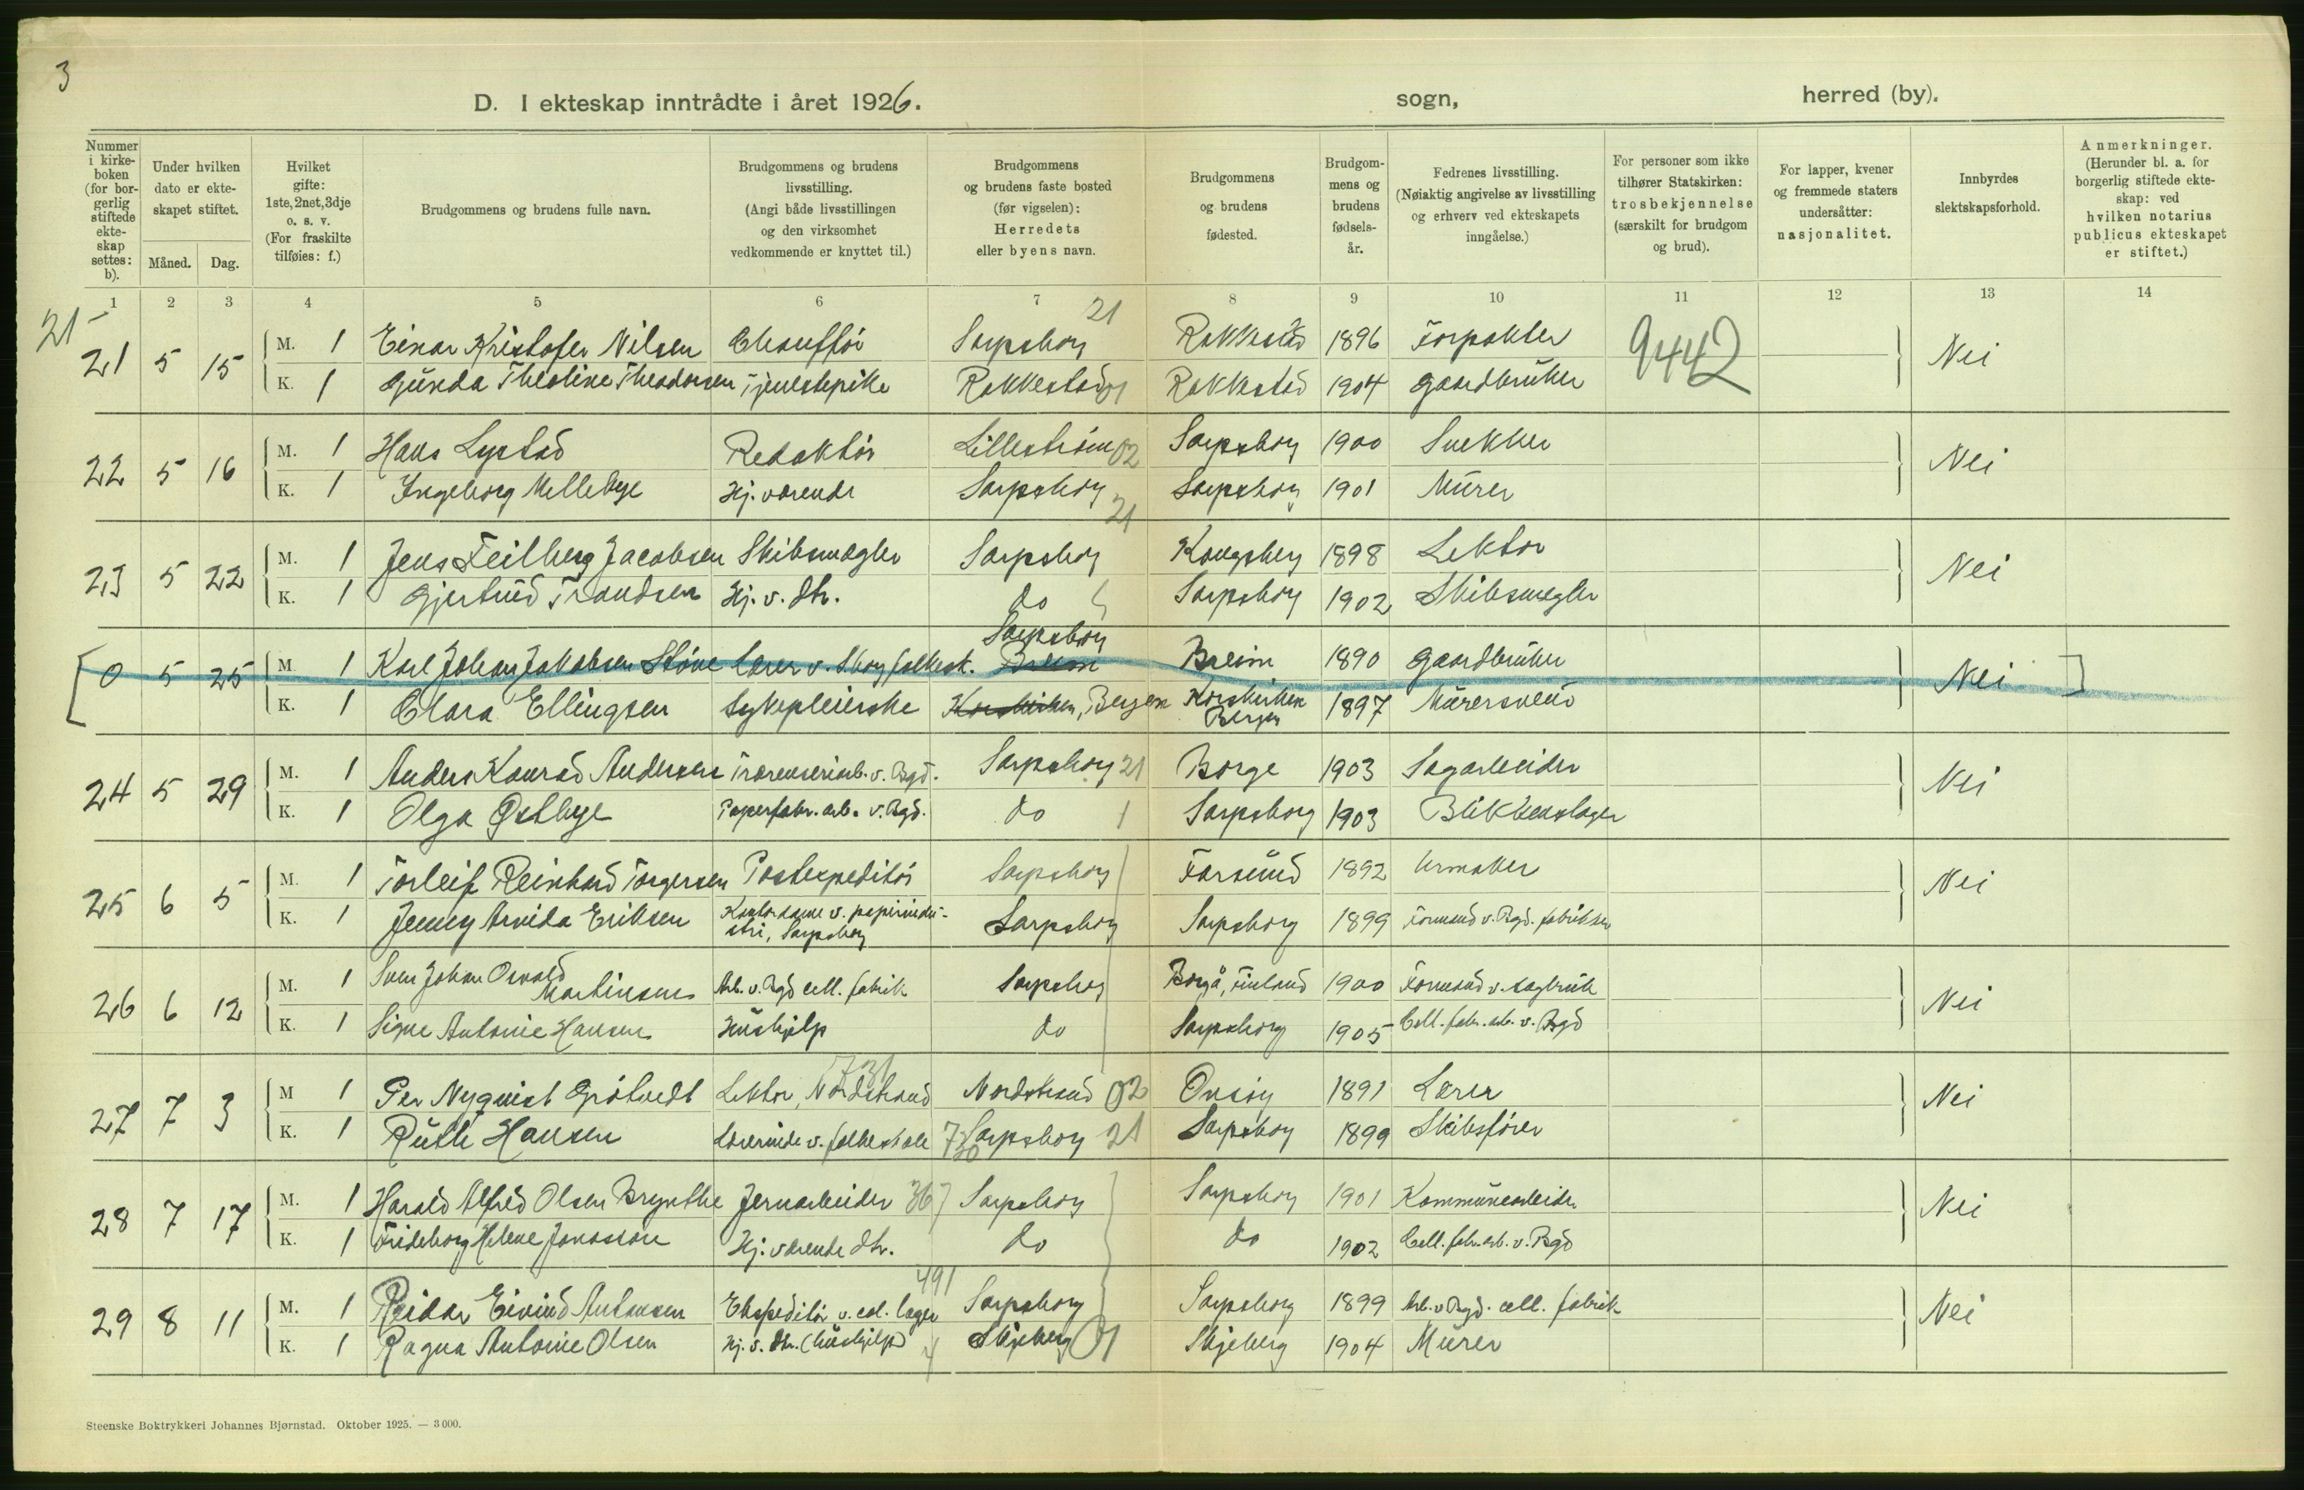 3
D. I ekteskap inntrådte i året 1926. sogn, herred (by).
Nummer i kirkeboken (for borgerlig stiftede ekteskap settes: b).
Under hvilken dato er ekteskapet stiftet.
Måned. Dag.
Hvilket gifte: 1ste, 2net, 3dje o. s. v. (For fraskilte tilføies: f.)
Brudgommens og brudens fulle navn.
Brudgommens og brudens livsstilling. (Angi både livsstillingen og den virksomhet vedkommende er knyttet til.)
Brudgommens og brudens faste bosted (før vigselen): Herredets eller byens navn.
Brudgommens og brudens fødested.
Brudgommens og brudens fødselsår.
Fedrenes livsstilling. (Nøiaktig angivelse av livsstilling og erhverv ved ekteskapets inngåelse.)
For personer som ikke tilhører Statskirken: trosbekjennelse (særskilt for brudgom og brud).
For lapper, kvener og fremmede staters undersåtter: nasjonalitet.
Innbyrdes slektskapsforhold.
Anmerkninger. (Herunder bl. a. for borgerlig stiftede ekteskap: ved hvilken notarius publicus ekteskapet er stiftet.)
1 2 3 4 5 6 7 8 9 10 11 12 13 14
21 21
21 5 15 M. 1 Einar Kristofer Nilsen Chauffør Sarpsborg Rakkestad 1896 Forpakter 9442 Nei
K. 1 Gunda Theoline Theodorsen Tjenestepike Rakkestad 01 Rakkestad 1904 Gaardbruker
22 5 16 M. 1 Hans Lystad Redaktør Lillestrøm 02 Sarpsborg 1900 Snekker Nei
K. 1 Ingeborg Mellebye Hj. værende Sarpsborg 21 Sarpsborg 1901 Murer
23 5 22 M. 1 Jens Feilberg Jacobsen Skibsmægler Sarpsborg Kongsberg 1898 Lektor Nei
K. 1 Gjertrud Frandsen Hj. v. dtr. do Sarpsborg 1902 Skibsmægler
Sarpsborg
[0 5 25 M. 1 Karl Johan Jakobsen Støve Lærer v. Sborg folkesk. Breim Breim 1890 Gaardbruker Nei]
K. 1 Clara Ellingsen Sykepleierske Korskirken, Bergen Korskirken Bergen 1897 Murersvend
24 5 29 M. 1 Anders Konrad Andersen Træreenseriarb. v. Bgd. Sarpsborg 21 Borge 1903 Sagarbeider Nei
K. 1 Olga Østbye Papirfabr. arb. v. Bgd. do Sarpsborg 1903 Blikkenslager
25 6 5 M. 1 Torleif Reinhard Torgersen Postexpeditør Sarpsborg Farsund 1892 Urmaker Nei
K. 1 Jenny Arvida Eriksen Kontordame v. papirindustri, Sarpsborg Sarpsborg Sarpsborg 1899 Formand v. Bgd. fabrikker
26 6 12 M. 1 Sven Johan Osvald Martinsen Arb. v. Bgd cell. fabrik Sarpsborg Borgå, Finland 1900 Formand v. sagbruk Nei
K. 1 Signe Antonie Hansen Hushjelp do Sarpsborg 1905 Cell. fabr. arb. v. Bgd
731
27 7 3 M 1 Per Nyquist Grøtvedt Lektor, Nordstrand Nordstrand 02 Onsøy 1891 Lærer Nei
K. 1 Ruth Hansen Lærerinde v. folkeskole 730 Sarpsborg 21 Sarpsborg 1899 Skibsfører
28 7 17 M. 1 Harald Alfred Olsen Brynthe Jernarbeider 367 Sarpsborg Sarpsborg 1901 Kommunearbeider Nei
K. 1 Frideborg Helene Jonassen Hj. værende dtr. do do 1902 Cell. fabr. arb. v. Bgd
491
29 8 11 M. 1 Reidar Eivind Antonsen Ekspeditør v. col. lager Sarpsborg Sarpsborg 1899 Arb. v Bgd. cell. fabrik Nei
K. 1 Ragna Antonie Olsen Hj. v. dtr. (hushjelp) Skjeberg 01 Skjeberg 1904 Murer
Steenske Boktrykkeri Johannes Bjørnstad. Oktober 1925. — 3000.